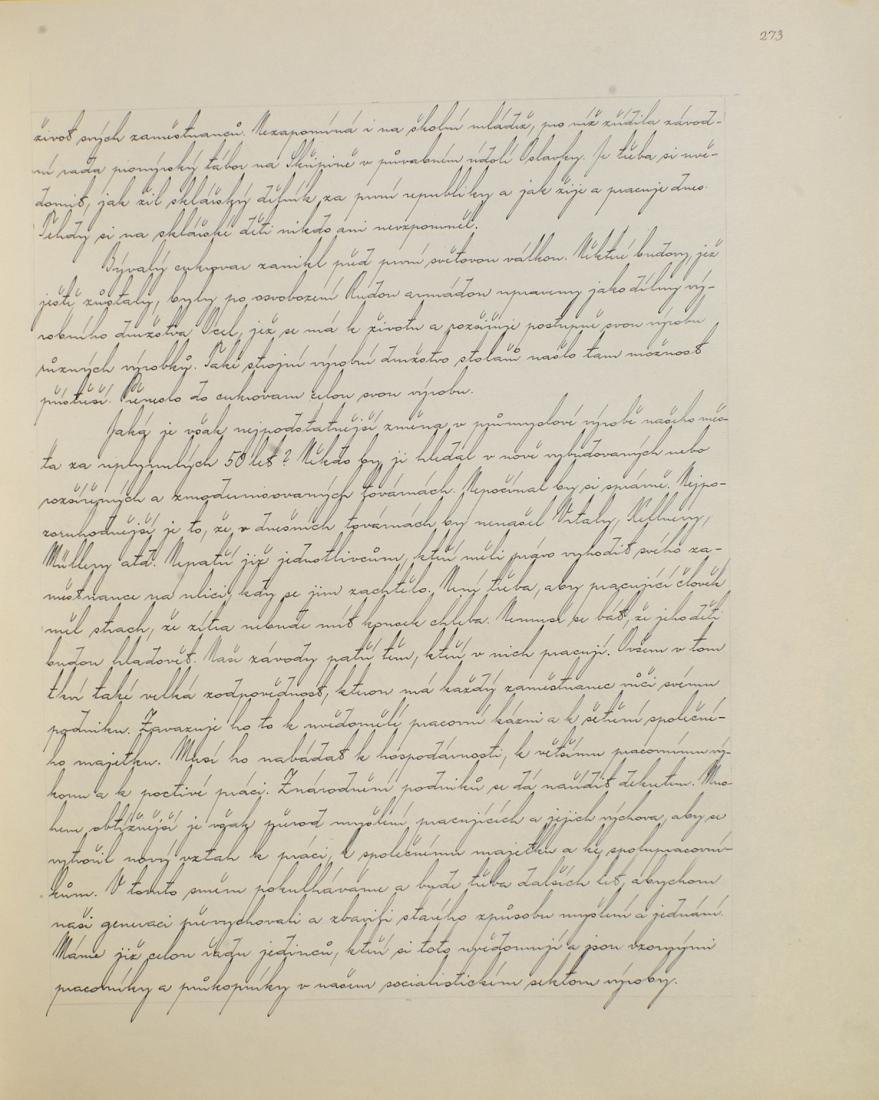 273
život svých zaměstnanců. Nezapomíná i na školní mládež, pro níž zřídila závod-
ní rada pionýrský tábor na Skřipině v půvabném údolí Oslavky. Je třeba si uvě-
domit, jak žil sklářský dělník za první republiky a jak žije a pracuje dnes.
Tehdy si na sklářské děti nikdo ani nevzpomněl.
Bývalý cukrovar zanikl před první světovou válkou. Některé budovy, jež
ještě zůstaly, byly po osvobození Rudou armádou upraveny jako dílny vý-
robního družstva Ocel, jež se má k životu a rozšiřuje postupně svou výrobu
různých výrobků. Také strojní výrobní družstvo stolařů našlo tam možnost
přístřeší. Přeneslo do cukrovaru celou svou výrobu.
Jaká je však nejpodstatnější změna v průmyslové výrobě našeho měs-
ta za uplynulých 50 let? Někdo by ji hledal v nově vybudovaných nebo
rozšířených a zmodernisovaných továrnách. Nepočínal by si správně. Nejpo-
zoruhodnější je to, že v dnešních továrnách by nenašel Vrtaly, Kellnery,
Müllery atd. Nepatří již jednotlivcům, kteří měli právo vyhodit svého za-
městnance na ulici, kdy se jim zachtělo. Není třeba, aby pracující člověk
měl strach, že zítra nebude mít kousek chleba. Nemusí se bát, že jeho děti
budou hladovět. Naše závody patří těm, kteří v nich pracují. Ovšem v tom
tkví také velká zodpovědnost, kterou má každý zaměstnanec vůči svému
podniku. Zavazuje ho to k uvědomělé pracovní kázni a k šetření společné-
ho majetku. Musí ho nabádat k hospodárnosti, k většímu pracovnímu vý-
konu a k poctivé práci. Znárodnění podniků se dá nařídit dekretem. Mno-
hem obtížnější je však převod myšlení pracujících a jejich výchova, aby se
vytvořil nový vztah k práci, k společnému majetku a ke spolupracovní-
kům. V tomto směru pokulháváme a bude třeba dalších let, abychom
naši generaci převychovali a zbavili starého způsobu myšlení a jednání.
Máme již celou řadu jedinců, kteří si toto uvědomují a jsou vzornými
pracovníky a průkopníky v našem socialistickém sektoru výroby.